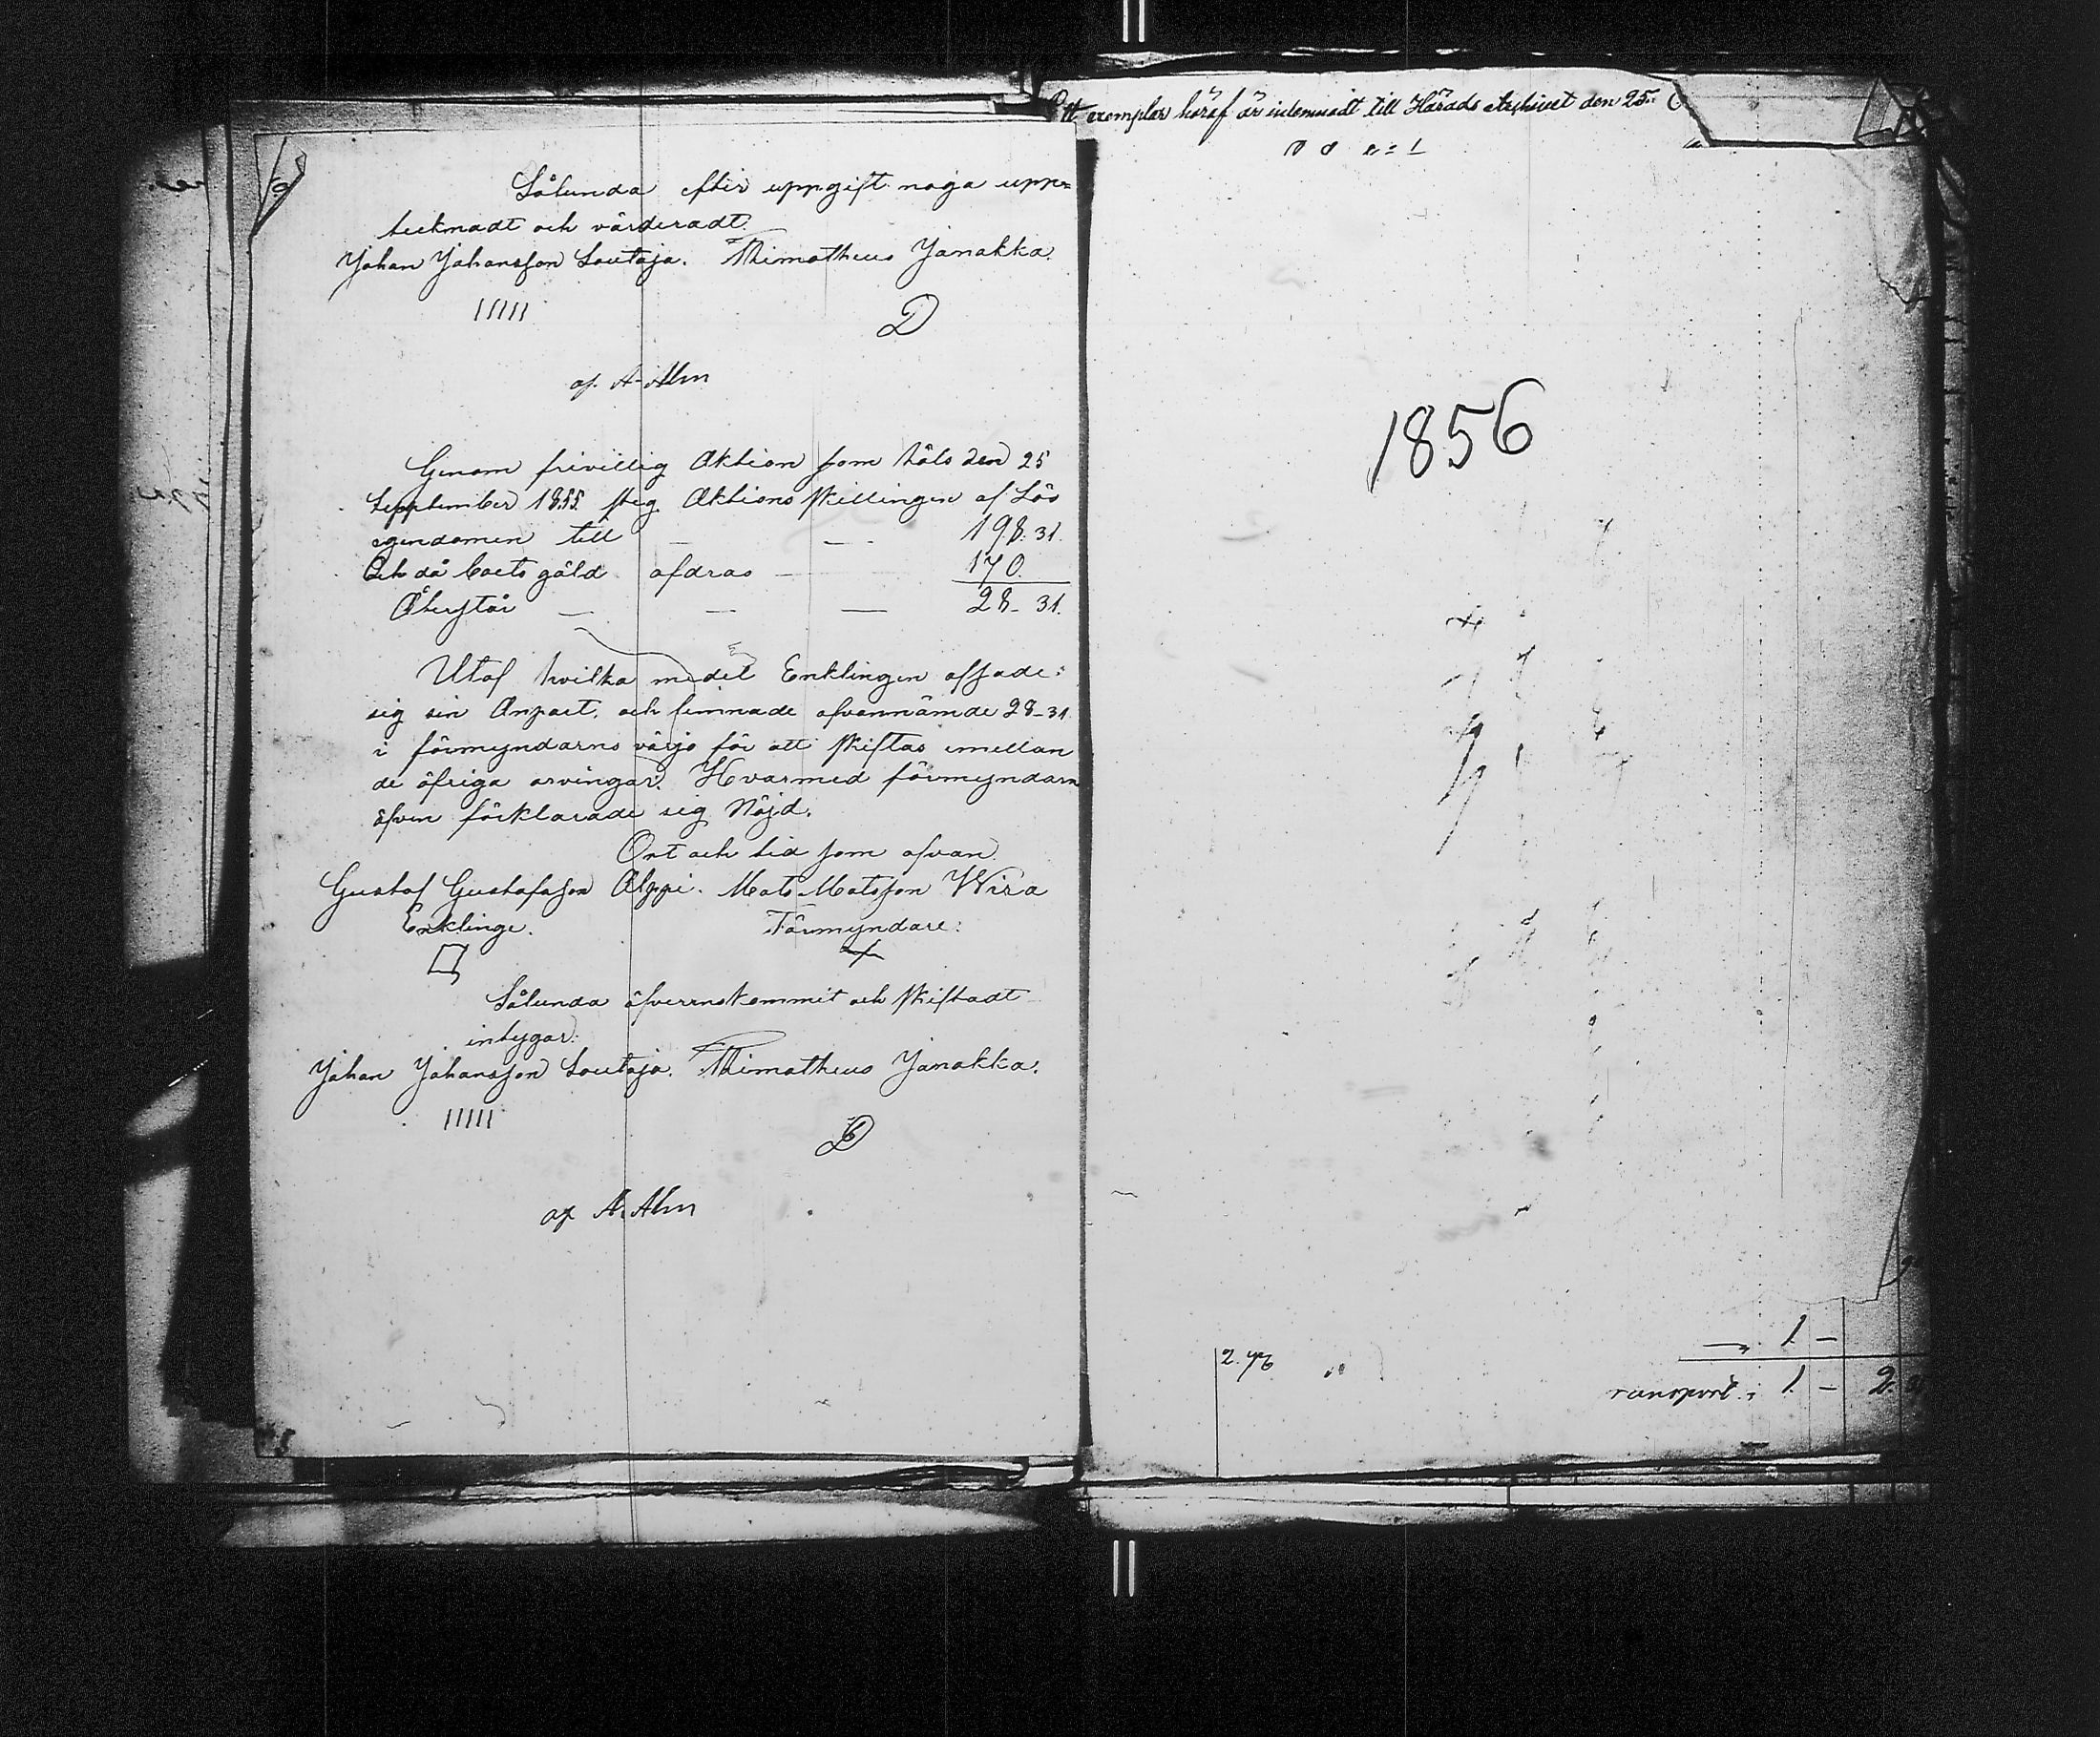 Sålunda efter uppgift noga upp=
tecknadt och värderadt.
Johan Johansson Soutaja. Thimotheus Janakka.
D
af. A. Alm
Genom frivillig Aktion som hôls den 25
September 1855. steg Aktions skillingen af Lös
egendomen till — — 198. 31.
Och då boets gäld afdras — 170.
Återstår — — — 28 - 31.
Utaf hvilka medel Enklingen afsade:
sig sin Anpart, och lemnade ofvannämde 28-31
i förmyndarns värjo för att skiftas emellan
de öfriga arvingar. Hvarmed förmyndarn
äfven förklarade sig Nöjd.
Ort och tid som ofvan.
Gustaf Gustafsson Alppi. Mats Matsson Wira
Enklinge. Förmyndare:
Sålunda öfverenskommit och skiftadt
intygar:
Johan Johansson Soutaja. Thimotheus Janakka.
D
af A. Alm
Ett exemplar häraf är inlemnadt till Härads Archivet den 25
1856
1 —
2.76
ransport. 1 — 2.